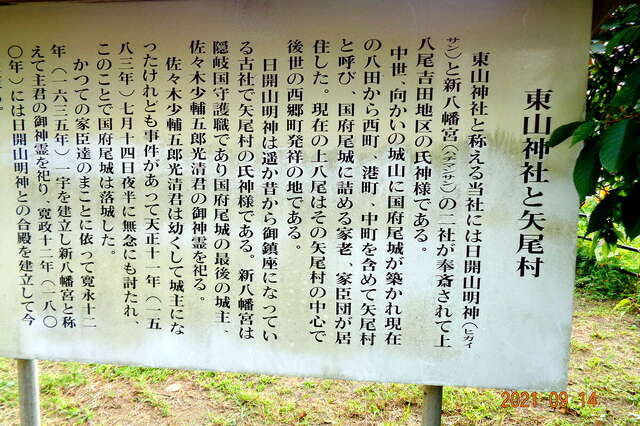 東山神社と矢尾村
東山神社と称える当社には日開山明神（ヒカイ
サン）と新八幡宮（ハチンサン）の二社が奉斎されて上
八尾吉田地区の氏神様である。
中世、向かいの城山に国府尾城が築かれ現在
の八田から西町、港町、中町を含めて矢尾村
と呼び、国府尾城に詰める家老、家臣団が居
住した。現在の上八尾はその矢尾村の中心で
後世の西郷町発祥の地である。
日開山明神は遥か昔から御鎮座になってい
る古社で矢尾村の氏神様である。新八幡宮は
隠岐国守護職であり国府尾城の最後の城主、
佐々木少輔五郎光清君の御神霊を祀る。
佐々木少輔五郎光清君は幼くして城主にな
ったけれども事件があって天正十一年（一五
八三年）七月十四日夜半に無念にも討たれ、
このことで国府尾城は落城した。
かつての家臣達のまことに依って寛永十二
年（一六三五年）一宇を建立し新八幡宮と称
えて主君の御神霊を祀り、寛政十二年（一八〇
〇年）には日開山明神との合殿を建立して今
2021.09.14